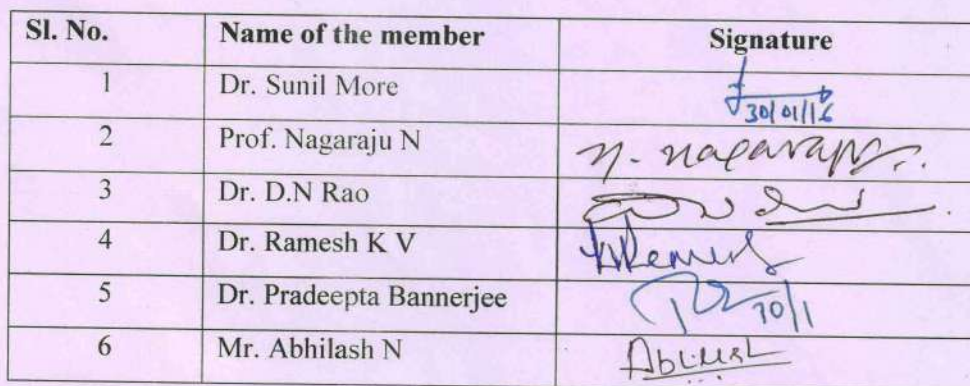 Sl. No. Name of the member Signature
1 Dr. Sunil More 30/01/16
2 Prof. Nagaraju N N. Nagaraju
3 Dr. D.N Rao
4 Dr. Ramesh K V KVRamesh
5 Dr. Pradeepta Bannerjee 30/1
6 Mr. Abhilash N Abhilash